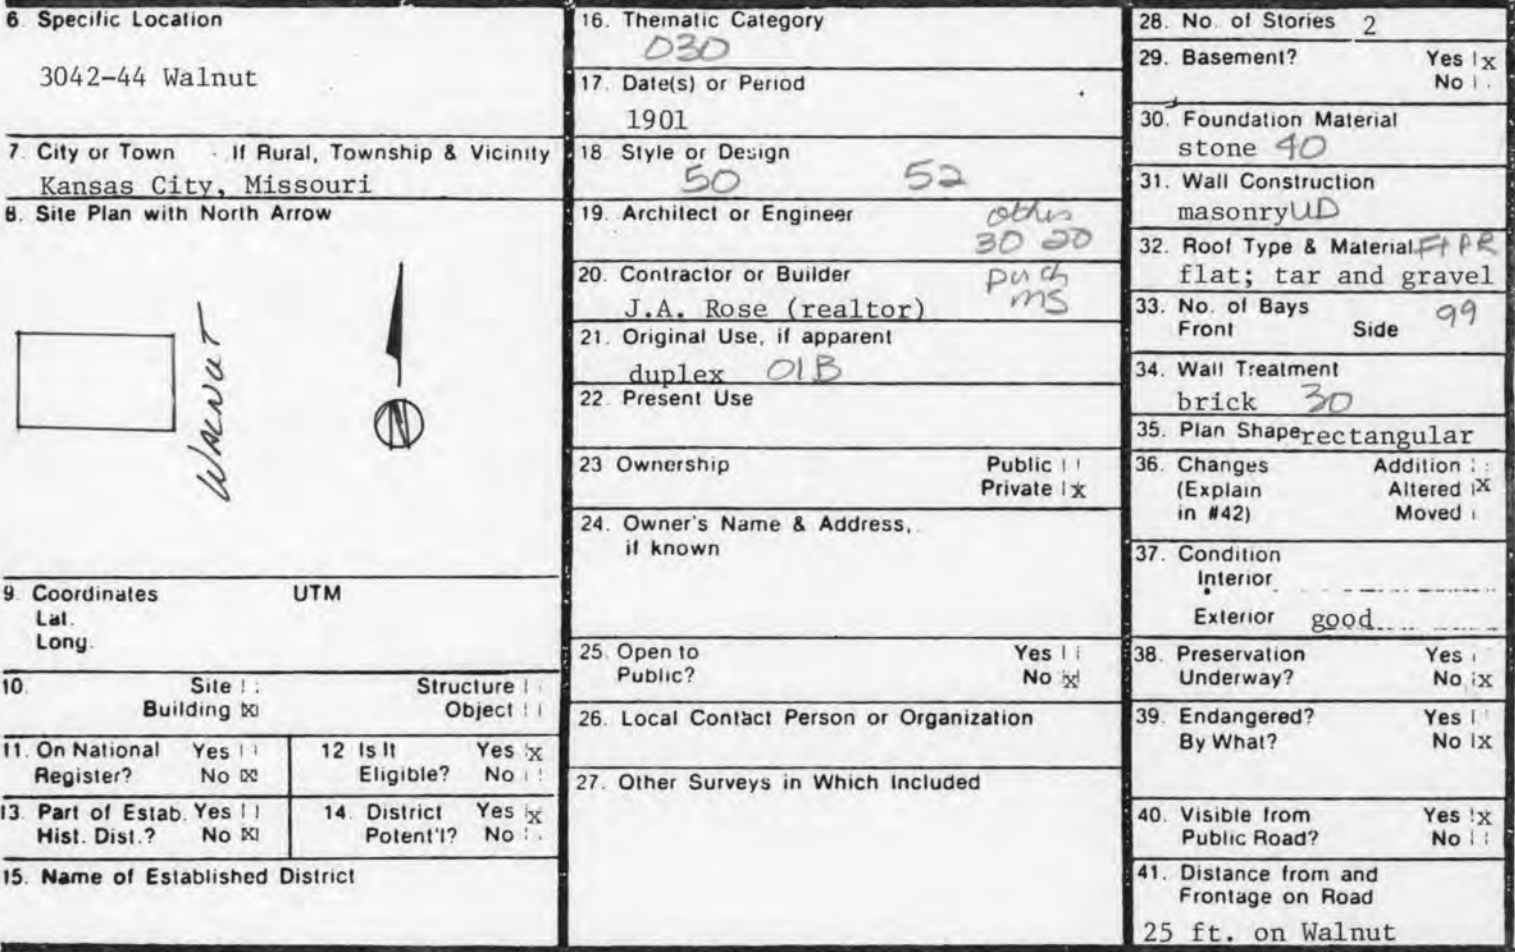 6. Specific Location
3042-44 Walnut
7. City or Town If Rural, Township & Vicinity
Kansas City, Missouri
8. Site Plan with North Arrow
WALNUT
9. Coordinates UTM
Lat.
Long.
10. Site
Structure
Building [X]
Object
11. On National Register? Yes
No [X]
12 Is It Eligible? Yes [X]
No
13. Part of Estab. Hist. Dist.? Yes
No [X]
14. District Potent'l? Yes [X]
No
15. Name of Established District
16. Thematic Category
030
17. Date(s) or Period
1901
18. Style or Design
50 52
19. Architect or Engineer
30 20
20. Contractor or Builder
J.A. Rose (realtor)
21. Original Use, if apparent
duplex 01B
22. Present Use
23 Ownership Public
Private [X]
24. Owner's Name & Address,
if known
25. Open to Yes
Public? No [X]
26. Local Contact Person or Organization
27. Other Surveys in Which Included
28. No. of Stories 2
29. Basement? Yes [X]
No
30. Foundation Material
stone 40
31. Wall Construction
masonry UD
32. Roof Type & Material
flat; tar and gravel
33. No. of Bays 99
Front Side
34. Wall Treatment
brick 30
35. Plan Shape rectangular
36. Changes Addition
(Explain Altered [X]
in #42) Moved
37. Condition
Interior
Exterior good
38. Preservation Yes
Underway? No [X]
39. Endangered? Yes
By What? No [X]
40. Visible from Yes [X]
Public Road? No
41. Distance from and
Frontage on Road
25 ft. on Walnut